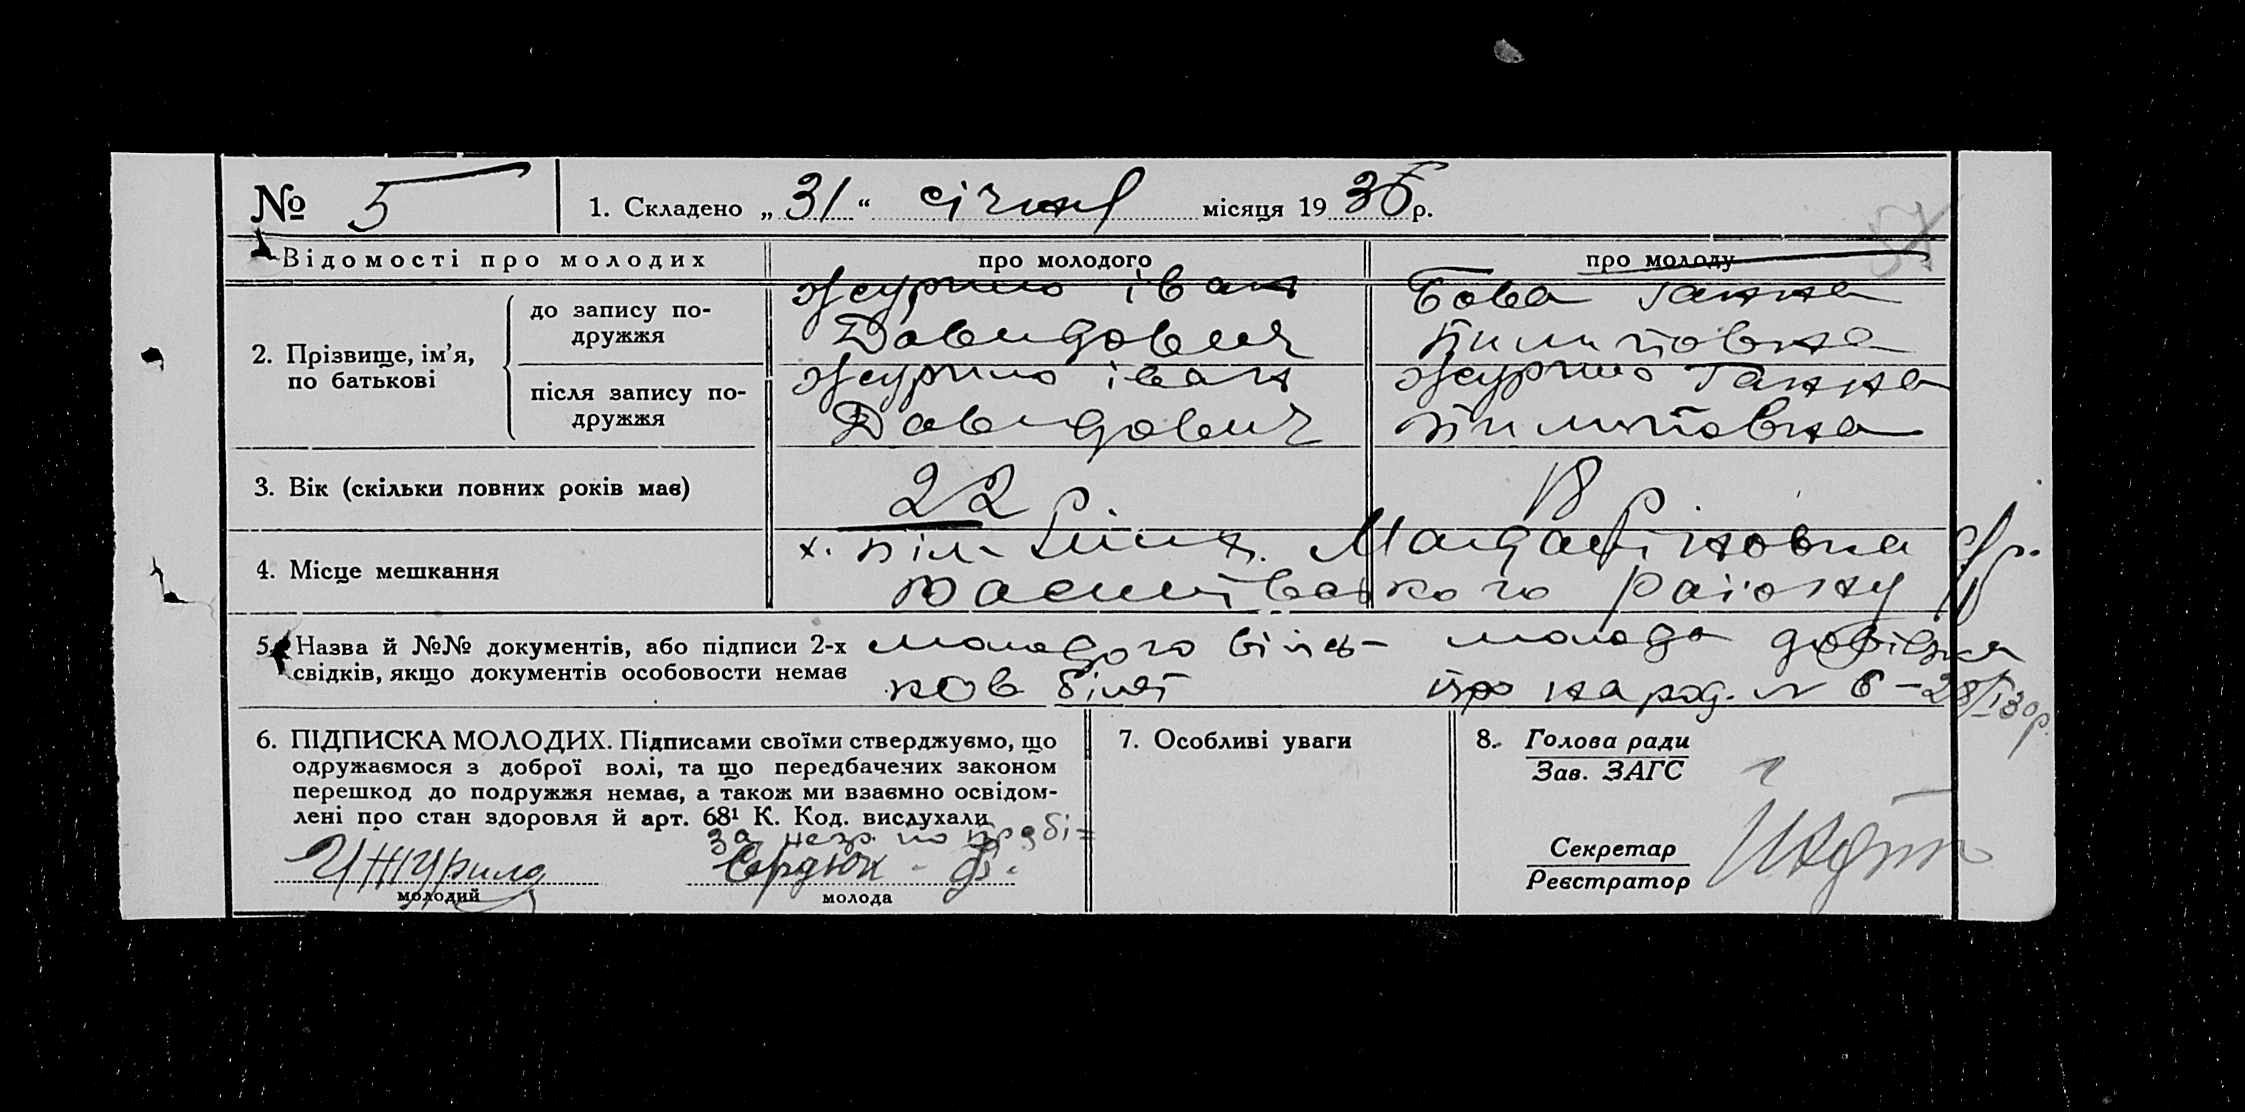 № 5 1. Складено „31“ січня місяця 1935 р.
Відомості про молодих про молодого про молоду
2. Прізвище, ім’я, по батькові
до запису подружжя
Журило Іван Бова Ганна
Давидович Пилиповна
після запису подружжя
Журило Іван Журило Ганна
Давидович Пилиповна
3. Вік (скільки повних років має) 22 р. 18 р.
4. Місце мешкання
х.
району
5. Назва й №№ документів, або підписи 2-х молодого війсь- молода довідка
свідків, якщо документів особовости немає ков білет про народ. № 6 – 28/I 30р.
6. ПІДПИСКА МОЛОДИХ. Підписами своїми стверджуємо, що
одружаємося з доброї волі, та що передбачених законом
перешкод до подружжя немає, а також ми взаємно освідом-
лені про стан здоровля й арт. 68¹ К. Код. вислухали
за незр. по прозбі
ИЖурило Сердюк
молодий молода
7. Особливі уваги
8. Голова ради
Зав. ЗАГС
Секретар
Реєстратор